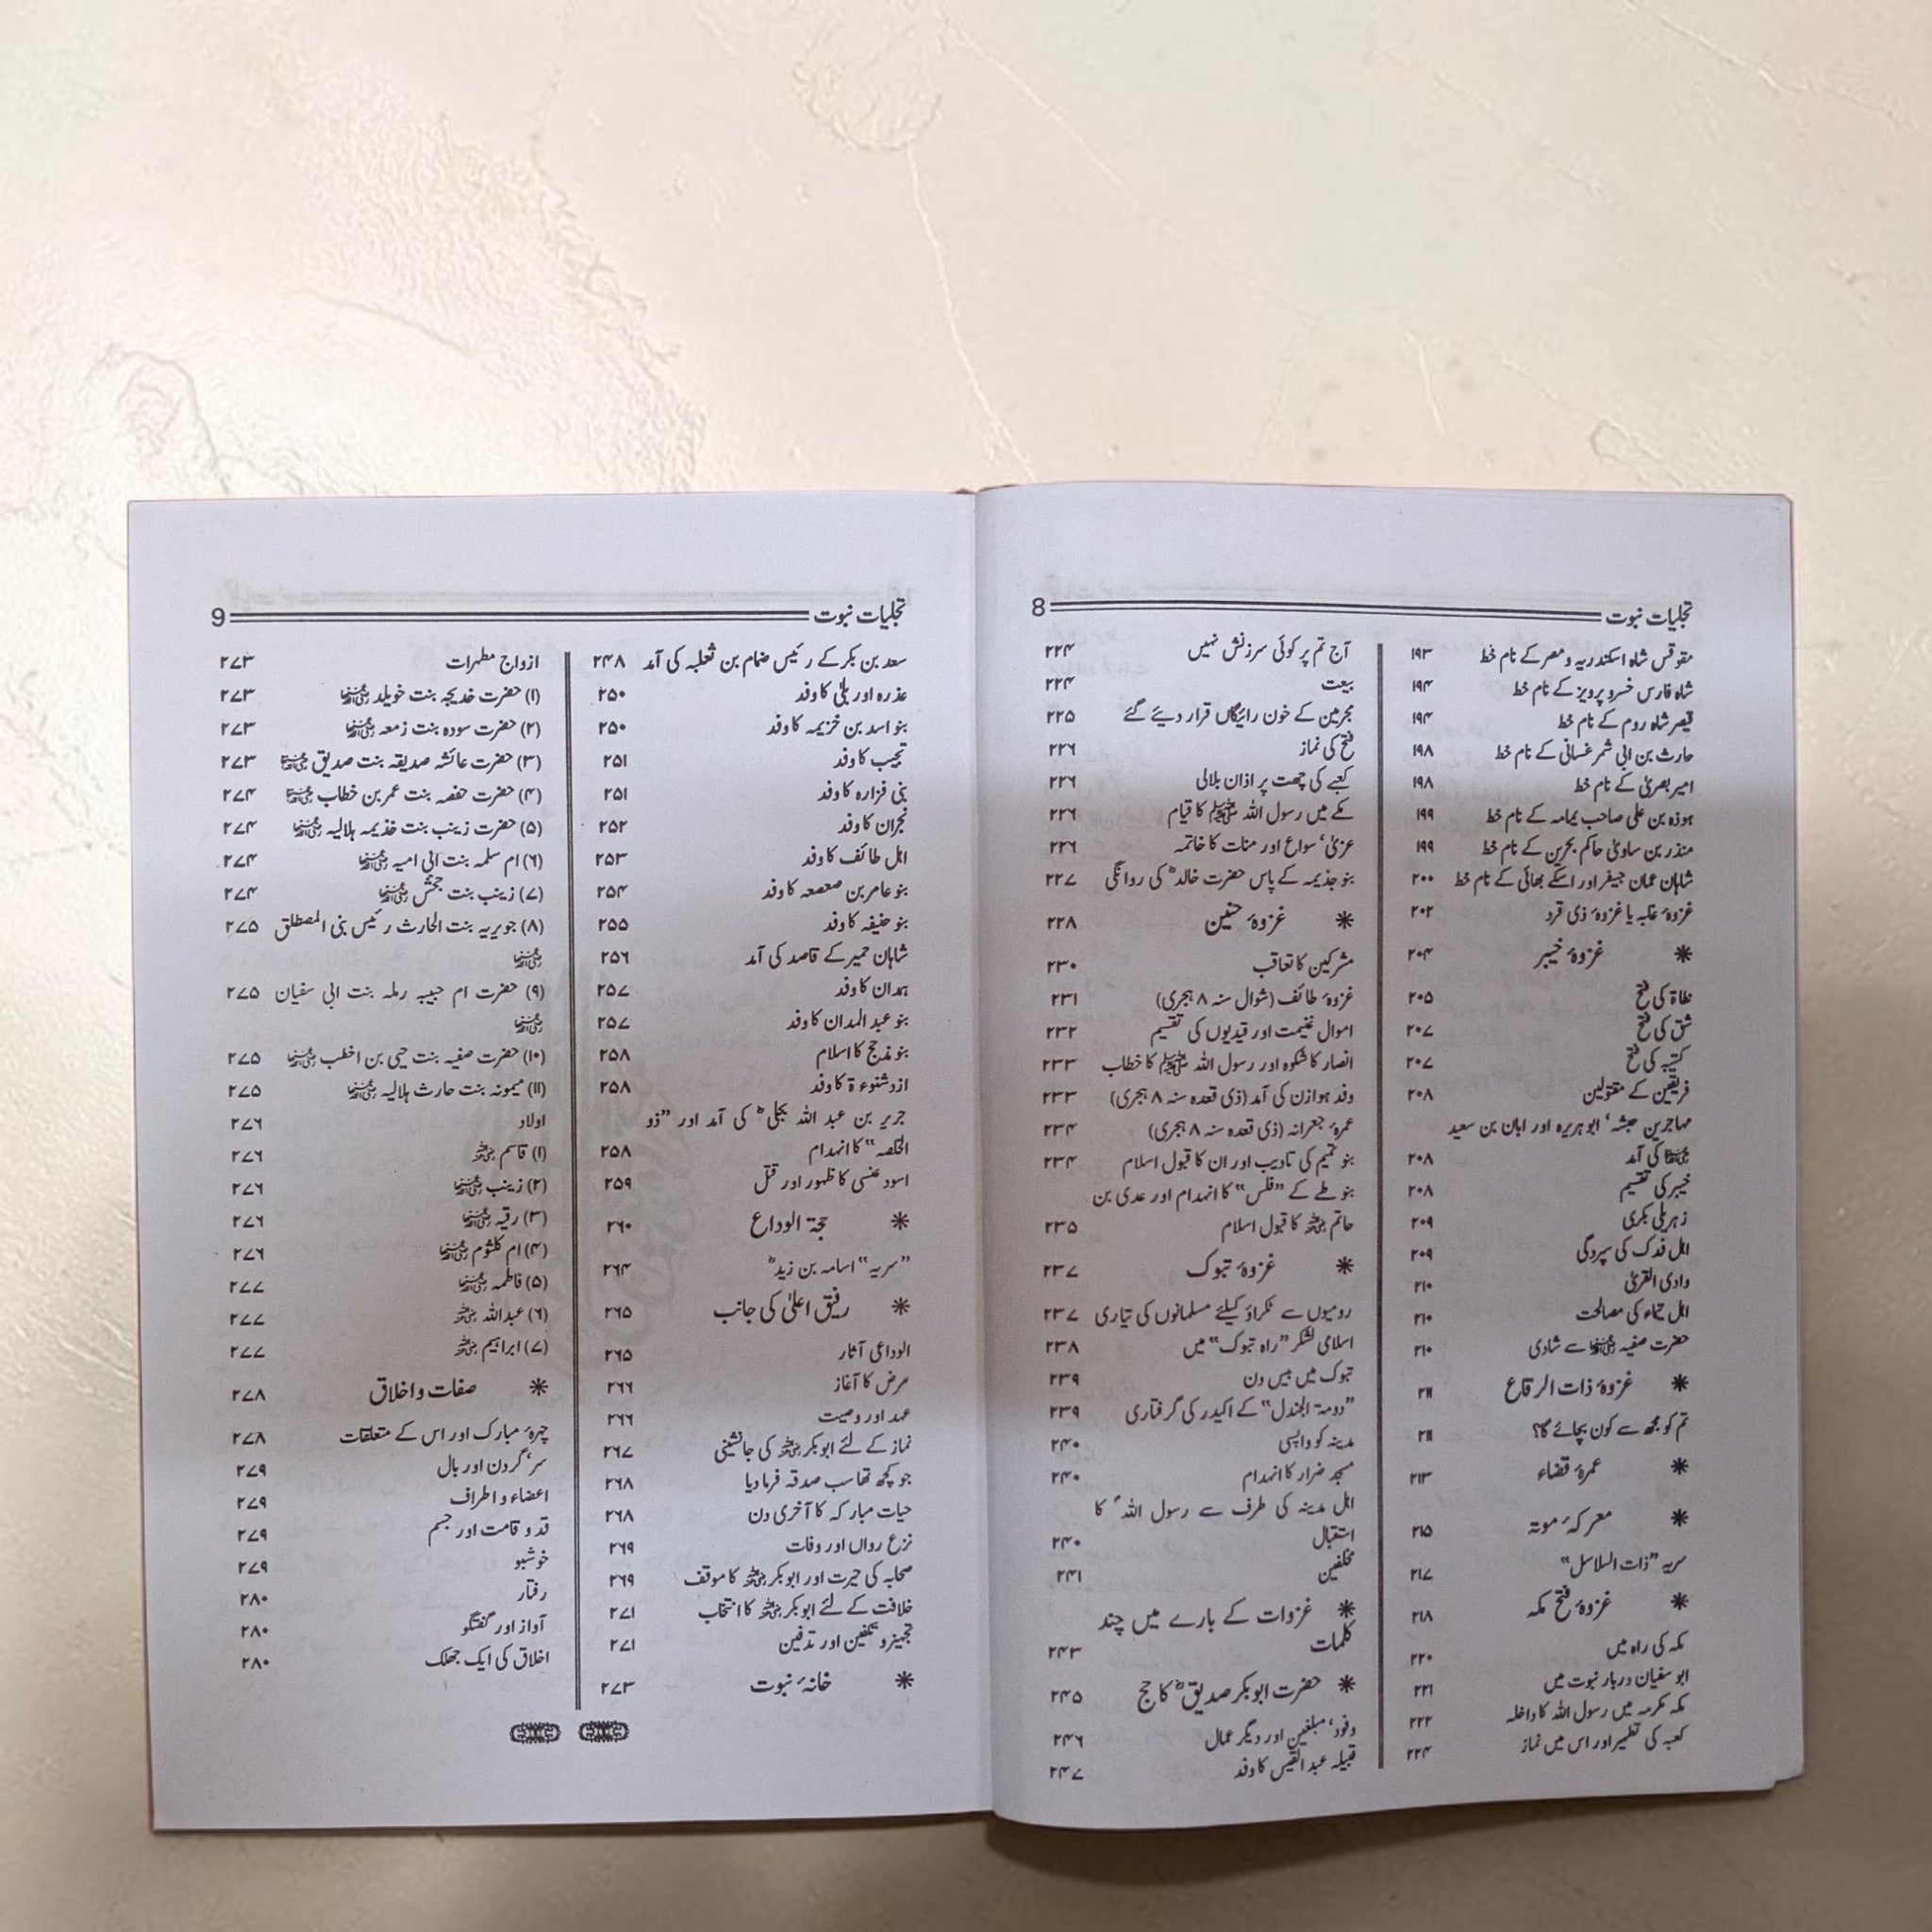 تجلیات نبوت 8
مقوقس شاہ اسکندریہ و مصر کے نام خط ۱۹۳
شاہ فارس خسرو پرویز کے نام خط ۱۹۴
قیصر شاہ روم کے نام خط ۱۹۴
حارث بن ابی شمر غسانی کے نام خط ۱۹۸
امیر بصریٰ کے نام خط ۱۹۸
ہوذہ بن علی صاحب یمامہ کے نام خط ۱۹۹
منذر بن ساویٰ حاکم بحرین کے نام خط ۱۹۹
شاہان عمان جیفر اور اسکے بھائی کے نام خط ۲۰۰
غزوۂ غابہ یا غزوۂ ذی قرد ۲۰۲
* غزوۂ خیبر ۲۰۴
نطاۃ کی فتح ۲۰۵
شق کی فتح ۲۰۷
کتیبہ کی فتح ۲۰۷
فریقین کے مقتولین ۲۰۸
مہاجرین حبشہ‘ ابو ہریرہ اور ابان بن سعید
رضی اللہ عنہم کی آمد ۲۰۸
خیبر کی تقسیم ۲۰۸
زہریلی بکری ۲۰۹
اہل فدک کی سپردگی ۲۰۹
وادی القریٰ ۲۱۰
اہل تیماء کی مصالحت ۲۱۰
حضرت صفیہ رضی اللہ عنہا سے شادی ۲۱۰
* غزوۂ ذات الرقاع ۲۱۱
تم کو مجھ سے کون بچائے گا؟ ۲۱۱
* عمرۂ قضاء ۲۱۳
* معرکۂ موتہ ۲۱۵
سریہ ”ذات السلاسل“ ۲۱۷
* غزوۂ فتح مکہ ۲۱۸
مکہ کی راہ میں ۲۲۰
ابو سفیان دربار نبوت میں ۲۲۱
مکہ مکرمہ میں رسول اللہ کا داخلہ ۲۲۲
کعبہ کی تطہیر اور اس میں نماز ۲۲۴
آج تم پر کوئی سرزنش نہیں ۲۲۴
بیعت ۲۲۴
مجرمین کے خون رائیگاں قرار دیئے گئے ۲۲۵
فتح کی نماز ۲۲۶
کعبے کی چھت پر اذان بلالی ۲۲۶
مکے میں رسول اللہ ﷺ کا قیام ۲۲۶
عزیٰ‘ سواع اور منات کا خاتمہ ۲۲۶
بنو جذیمہ کے پاس حضرت خالدؓ کی روانگی ۲۲۷
* غزوۂ حنین ۲۲۸
مشرکین کا تعاقب ۲۳۰
غزوۂ طائف (شوال سنہ ۸ ہجری) ۲۳۱
اموال غنیمت اور قیدیوں کی تقسیم ۲۳۲
انصار کا شکوہ اور رسول اللہ ﷺ کا خطاب ۲۳۳
وفد ہوازن کی آمد (ذی قعدہ سنہ ۸ ہجری) ۲۳۳
عمرۂ جعرانہ (ذی قعدہ سنہ ۸ ہجری) ۲۳۴
بنو تمیم کی تادیب اور ان کا قبول اسلام ۲۳۴
بنو طے کے ”فلس“ کا انہدام اور عدی بن
حاتم رضی اللہ عنہ کا قبول اسلام ۲۳۵
* غزوۂ تبوک ۲۳۷
رومیوں سے ٹکراؤ کیلئے مسلمانوں کی تیاری ۲۳۷
اسلامی لشکر ”راہ تبوک“ میں ۲۳۸
تبوک میں بیس دن ۲۳۹
”دومۃ الجندل“ کے اکیدر کی گرفتاری ۲۳۹
مدینہ کو واپسی ۲۴۰
مسجد ضرار کا انہدام ۲۴۰
اہل مدینہ کی طرف سے رسول اللہ ؐ کا
استقبال ۲۴۰
مخلفین ۲۴۱
* غزوات کے بارے میں چند
کلمات ۲۴۳
* حضرت ابوبکر صدیقؓ کا حج ۲۴۵
وفود‘ مبلغین اور دیگر عمال ۲۴۶
قبیلہ عبدالقیس کا وفد ۲۴۷
تجلیات نبوت 9
سعد بن بکر کے رئیس ضمام بن ثعلبہ کی آمد ۲۴۸
عذرہ اور بلیٰ کا وفد ۲۵۰
بنو اسد بن خزیمہ کا وفد ۲۵۰
تجیب کا وفد ۲۵۱
بنی فزارہ کا وفد ۲۵۱
نجران کا وفد ۲۵۲
اہل طائف کا وفد ۲۵۳
بنو عامر بن صعصعہ کا وفد ۲۵۴
بنو حنیفہ کا وفد ۲۵۵
شاہان حمیر کے قاصد کی آمد ۲۵۶
ہمدان کا وفد ۲۵۷
بنو عبدالمدان کا وفد ۲۵۷
بنو مذحج کا اسلام ۲۵۸
ازد شنوءۃ کا وفد ۲۵۸
جریر بن عبد اللہ بجلیؓ کی آمد اور ”ذو
الخلصہ“ کا انہدام ۲۵۸
اسود عنسی کا ظہور اور قتل ۲۵۹
* حجۃ الوداع ۲۶۰
”سریہ“ اسامہ بن زیدؓ ۲۶۴
* رفیق اعلیٰ کی جانب ۲۶۵
الوداعی آثار ۲۶۵
مرض کا آغاز ۲۶۶
عہد اور وصیت ۲۶۶
نماز کے لئے ابوبکر رضی اللہ عنہ کی جانشینی ۲۶۷
جو کچھ تھا سب صدقہ فرما دیا ۲۶۸
حیات مبارکہ کا آخری دن ۲۶۸
نزع رواں اور وفات ۲۶۹
صحابہ کی حیرت اور ابوبکر رضی اللہ عنہ کا موقف ۲۶۹
خلافت کے لئے ابوبکر رضی اللہ عنہ کا انتخاب ۲۷۱
تجہیز و تکفین اور تدفین ۲۷۱
* خانۂ نبوت ۲۷۳
ازواج مطہرات ۲۷۳
(۱) حضرت خدیجہ بنت خویلد رضی اللہ عنہا ۲۷۳
(۲) حضرت سودہ بنت زمعہ رضی اللہ عنہا ۲۷۳
(۳) حضرت عائشہ صدیقہ بنت صدیق رضی اللہ عنہا ۲۷۳
(۴) حضرت حفصہ بنت عمر بن خطاب رضی اللہ عنہا ۲۷۴
(۵) حضرت زینب بنت خذیمہ ہلالیہ رضی اللہ عنہا ۲۷۴
(۶) ام سلمہ بنت ابی امیہ رضی اللہ عنہا ۲۷۴
(۷) زینب بنت جحش رضی اللہ عنہا ۲۷۴
(۸) جویریہ بنت الحارث رئیس بنی المصطلق ۲۷۵
رضی اللہ عنہا
(۹) حضرت ام حبیبہ رملہ بنت ابی سفیان ۲۷۵
رضی اللہ عنہا
(۱۰) حضرت صفیہ بنت حیی بن اخطب رضی اللہ عنہا ۲۷۵
(۱۱) میمونہ بنت حارث ہلالیہ رضی اللہ عنہا ۲۷۵
اولاد ۲۷۶
(۱) قاسم رضی اللہ عنہ ۲۷۶
(۲) زینب رضی اللہ عنہا ۲۷۶
(۳) رقیہ رضی اللہ عنہا ۲۷۶
(۴) ام کلثوم رضی اللہ عنہا ۲۷۶
(۵) فاطمہ رضی اللہ عنہا ۲۷۷
(۶) عبداللہ رضی اللہ عنہ ۲۷۷
(۷) ابراہیم رضی اللہ عنہ ۲۷۷
* صفات و اخلاق ۲۷۸
چہرۂ مبارک اور اس کے متعلقات ۲۷۸
سر‘ گردن اور بال ۲۷۹
اعضاء و اطراف ۲۷۹
قد و قامت اور جسم ۲۷۹
خوشبو ۲۷۹
رفتار ۲۸۰
آواز اور گفتگو ۲۸۰
اخلاق کی ایک جھلک ۲۸۰